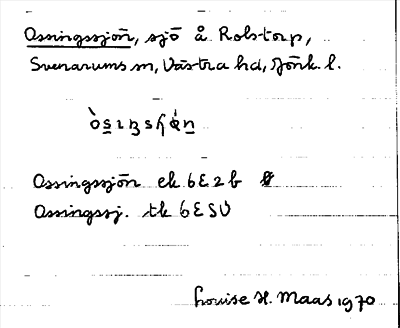 Assingssjön, sjö å Rolstorp,
Svenarums sn, Västra hd, Jönk. l.
Assingssjön ek 6E2b
Assingssj. tk 6E SV
Louise H. Maas 1970